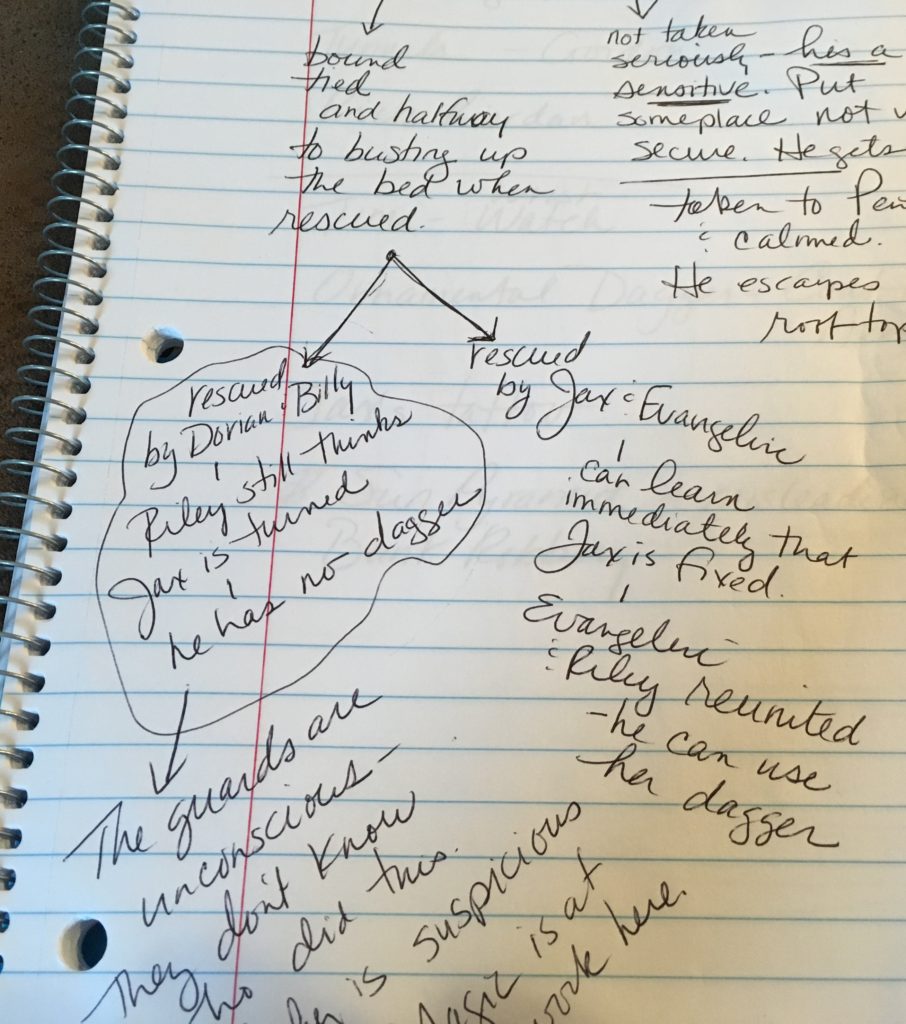 bound
tied
and halfway
to busting up
the bed when
rescued.
not taken
seriously – has a
sensitive. Put
someplace not
secure. He gets
taken to
& calmed.
He escapes
rooftop
rescued
by Dorian & Billy
Riley still thinks
Jax is turned
he has no dagger
rescued
by Jax & Evangeline
can learn
immediately that
Jax is fixed.
Evangeline
& Riley reunited
– he can use
her dagger
The guards are
unconscious –
They don't know
who did this.
is suspicious
magic is at
work here.